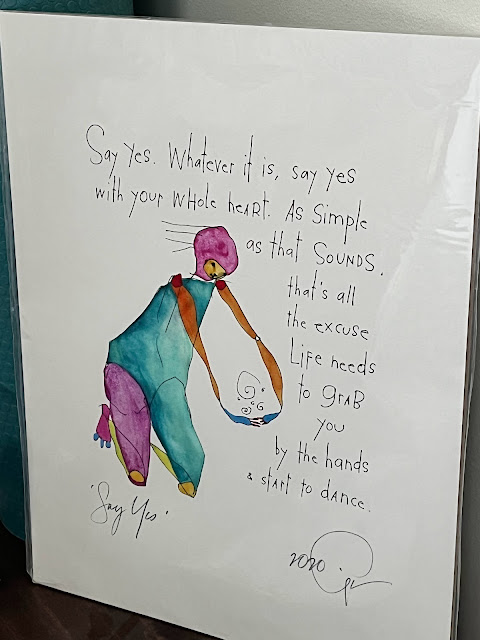 Say Yes. Whatever it is, say yes
with your whole heart. As Simple
as that SOUNDS.
that's all
the excuse
Life needs
to grab
you
by the hands
& start to dance.
'Say Yes'
2020